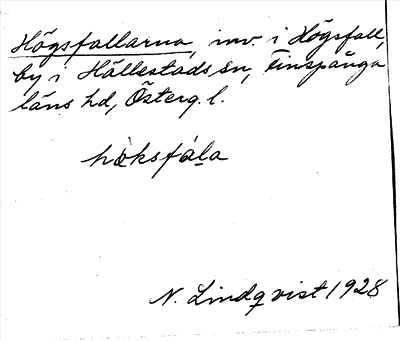 Högsfallarna, inv. i Högsfall,
by i Hällestads sn, Finspånga
läns hd, Österg. l.
hòksfála
N. Lindqvist 1928